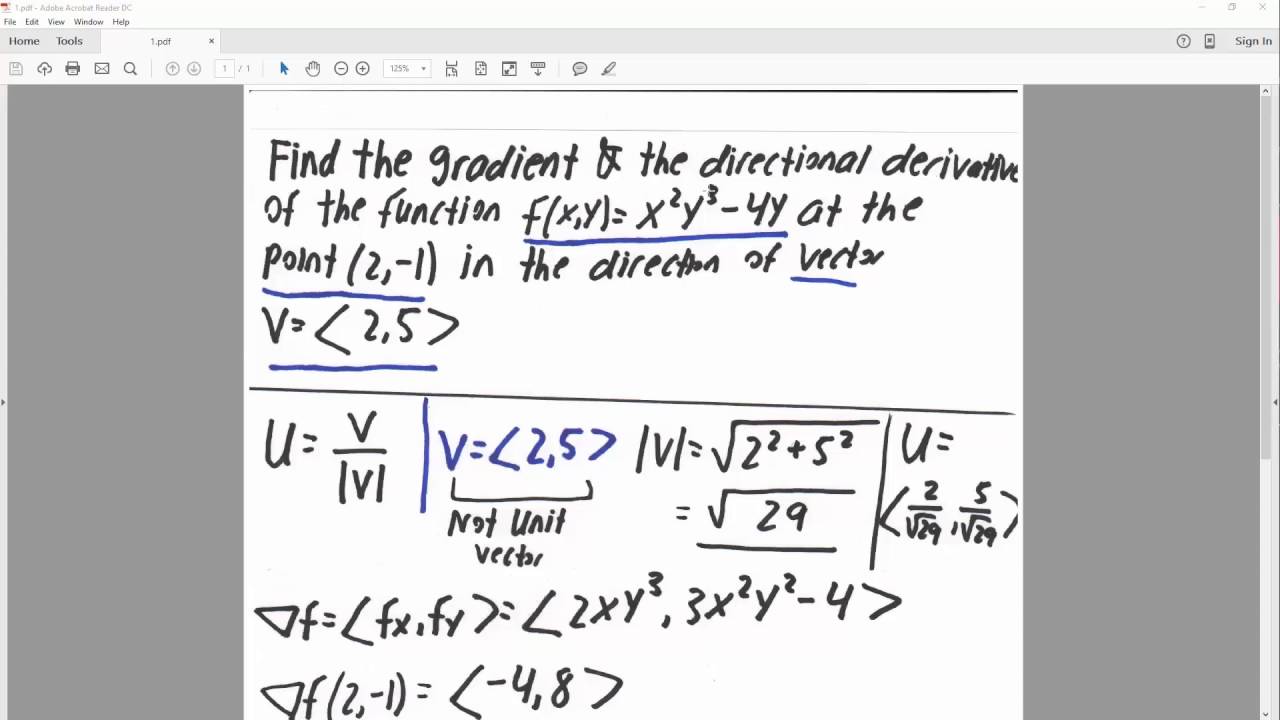 1.pdf - Adobe Acrobat Reader DC
File Edit View Window Help
Home Tools 1.pdf × Sign In
1 / 1 125%
Find the gradient & the directional derivative
of the function f(x,y)= x²y³-4y at the
point (2,-1) in the direction of vector
V=<2,5>
U= V/|V| V=<2,5> |V|=√2²+5² U=
Not Unit = √29 <2/√29, 5/√29>
vector
▽f=<fx,fy>=<2xy³, 3x²y²-4>
▽f(2,-1)= <-4,8>